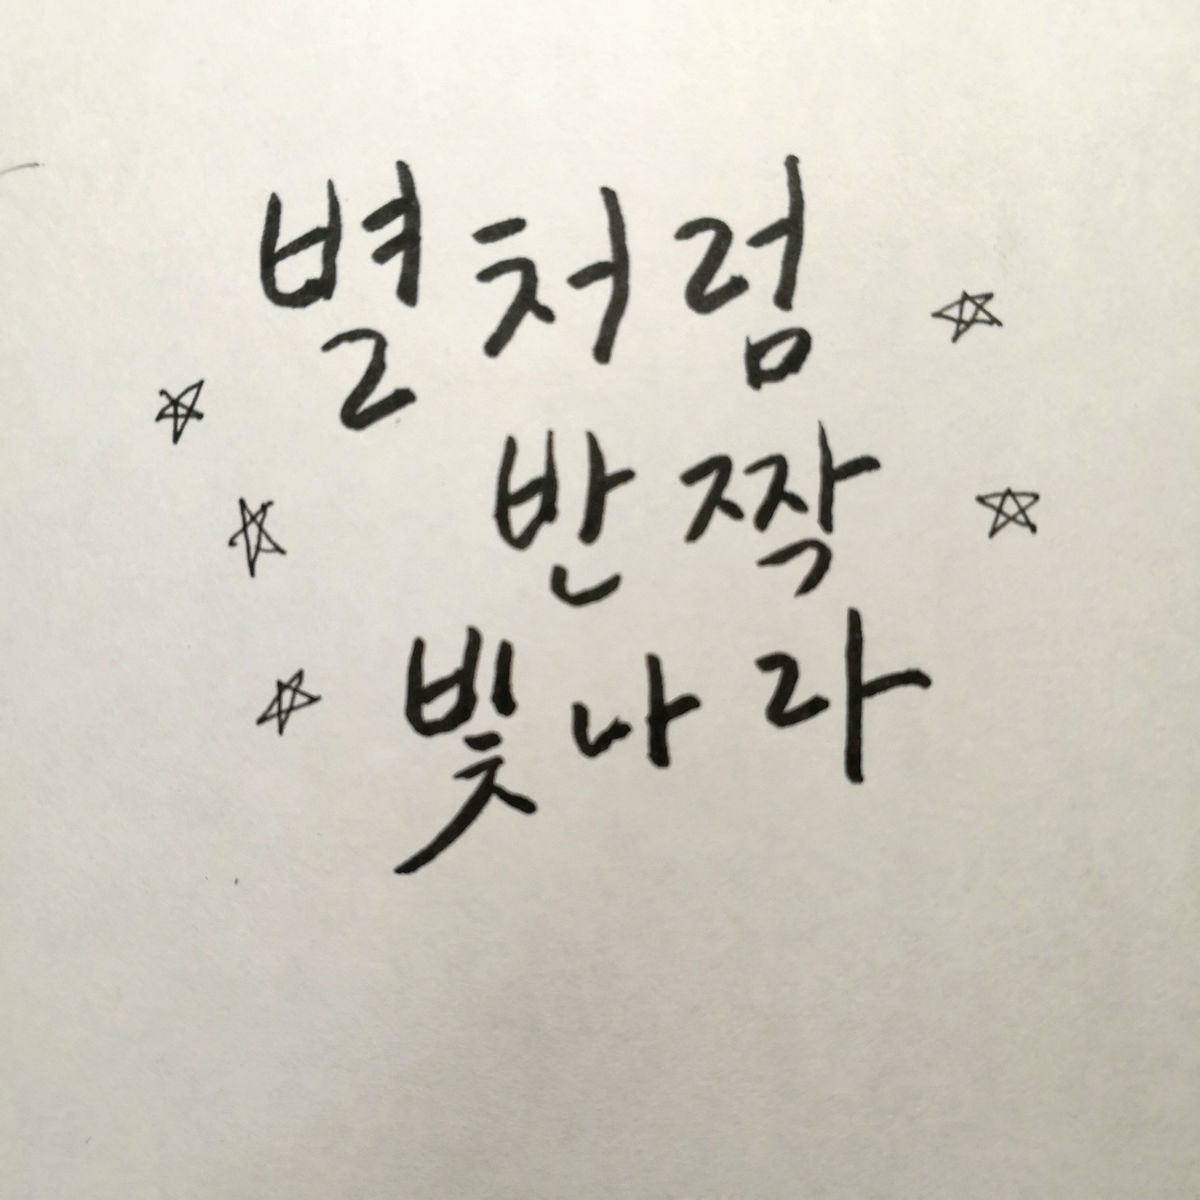 별처럼
반짝
빛나라